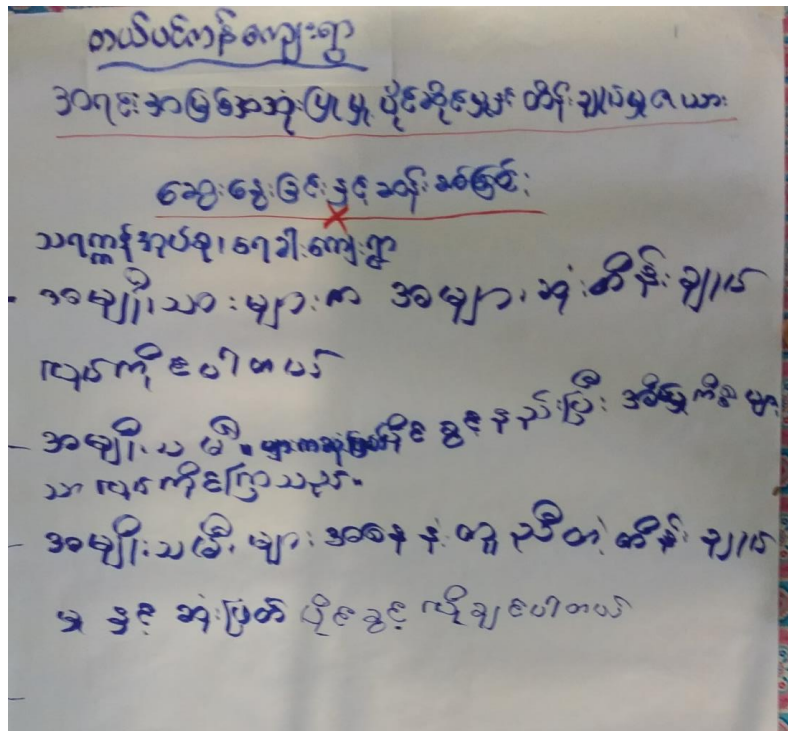 တယ်ပင်ကန်ကျေးရွာ
အရင်းအမြစ်အသုံးပြုမှု ပိုင်ဆိုင်မှုနှင့် ထိန်းချုပ်မှုဇယား
ဆွေးနွေးခြင်းနှင့် ဆန်းစစ်ခြင်း
သရက္ကန်အုပ်စု၊ ရေခါးကျေးရွာ
အမျိုးသားများက အများဆုံးထိန်းချုပ်
လုပ်ကိုင်ပါတယ်
- အမျိုးသမီးများကဆုံးဖြတ်ပိုင်ခွင့်နည်းပြီး အိမ်မှုကိစ္စများ
သာ လုပ်ကိုင်ကြသည်။
- အမျိုးသမီးများအနေနဲ့ တူညီတဲ့ ထိန်းချုပ်
မှုနှင့် ဆုံးဖြတ်ပိုင်ခွင့် လိုချင်ပါတယ်
-